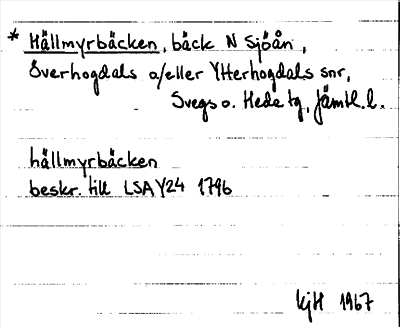 * Hällmyrbäcken, bäck N Sjöån,
Överhogdals a/eller Ytterhogdals snr,
Svegs o. Hede tg, Jämtl. l.
hällmyrbäcken
beskr. till LSA Y24 1796
kjH 1967